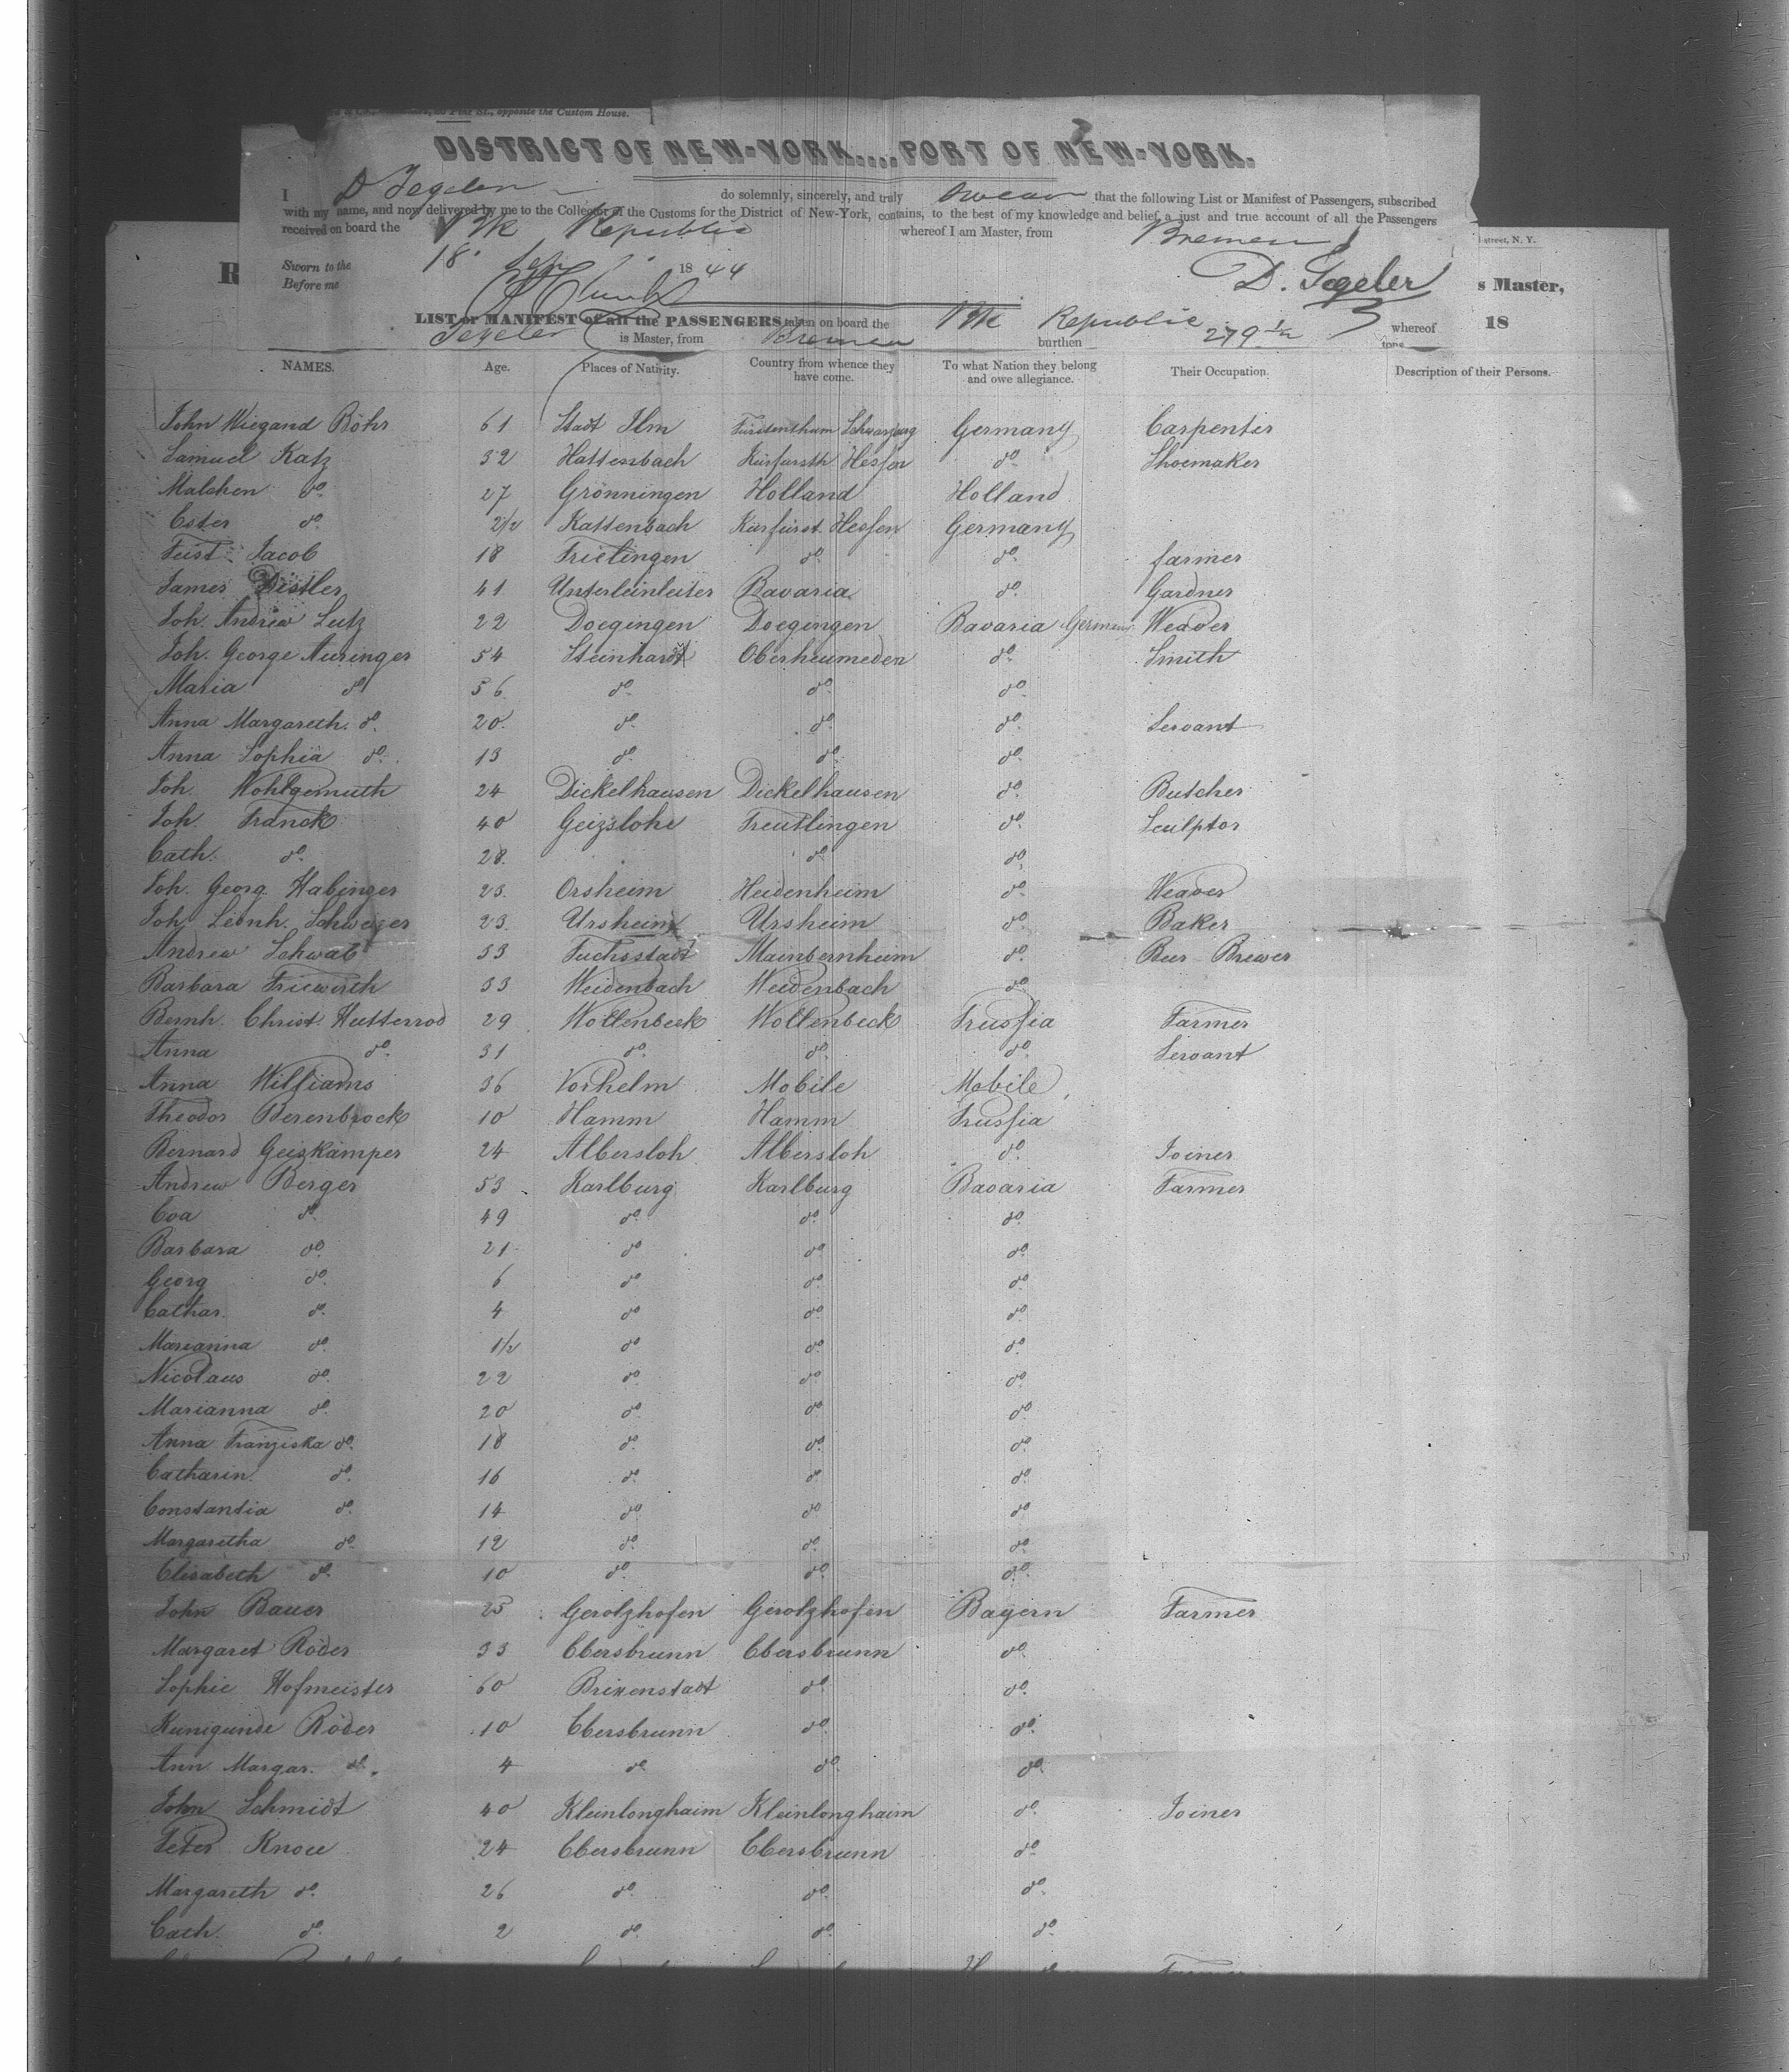 St., opposite the Custom House.
DISTRICT OF NEW-YORK....PORT OF NEW-YORK.
I D Tegeler do solemnly, sincerely, and truly swear that the following List or Manifest of Passengers, subscribed
with my name, and now delivered by me to the Collector of the Customs for the District of New-York, contains, to the best of my knowledge and belief, a just and true account of all the Passengers
received on board the Bk Republic whereof I am Master, from Bremen
street, N. Y.
Sworn to the 18 1844
Before me D. Tegeler
R s Master,
LIST or MANIFEST of all the PASSENGERS taken on board the Bk Republic whereof 18
Tegeler is Master, from Bremen burthen 279 1/2 tons
NAMES. Age. Places of Nativity. Country from whence they have come. To what Nation they belong and owe allegiance. Their Occupation. Description of their Persons.
John Wiegand Böhr 61 Stadt Ilm Fürstenthum Schwarzburg Germany Carpenter
Samuel Katz 32 Hattenbach Kurfürsth Hessen do Shoemaker
Malchen do 27 Grönningen Holland Holland
Ester do 2 1/2 Kattenbach Kurfürst Hessen Germany
Feist Jacob 18 Frielingen do do farmer
James Distler 41 Unterleinleiter Bavaria do Gardner
Joh. Andrew Lutz 22 Doegingen Doegingen Bavaria German Weaver
Joh. George Auringer 54 Steinhardt Oberheumeden do Smith
Maria do 56 do do do
Anna Margareth. do 20 do do do Servant
Anna Sophia do 13 do do do
Joh. Wohlgemuth 24 Dickelhausen Dickelhausen do Butcher
Joh. Franck 40 Geizslohe Treutlingen do Sculptor
Cath. do 28 do do
Joh. Georg Habinger 23 Orsheim Heidenheim do Weaver
Joh. Leonh. Schweizer 23 Ursheim Ursheim do Baker
Andrew Schwab 33 Fuchsstadt Mainbernheim do Beer Brewer
Barbara Friewirth 33 Weidenbach Weidenbach do
Bernh. Christ. Hutterrod 29 Wollenbeck Wollenbeck Prussia Farmer
Anna do 31 do do do Servant
Anna Williams 36 Vorhelm Mobile Mobile
Theodor Berenbrock 10 Hamm Hamm Prussia
Bernard Geizkämper 24 Albersloh Albersloh do Joiner
Andrew Berger 53 Karlburg Karlburg Bavaria Farmer
Eva do 49 do do do
Barbara do 21 do do do
Georg do 6 do do do
Cathar. do 4 do do do
Marianna do 1/2 do do do
Nicolaus do 22 do do do
Marianna do 20 do do do
Anna Franziska do 18 do do do
Catharin. do 16 do do do
Constantia do 14 do do do
Margaretha do 12 do do do
Elisabeth do 10 do do do
John Bauer 25 Gerolzhofen Gerolzhofen Bayern Farmer
Margaret Röder 33 Ebersbrunn Ebersbrunn do
Sophie Hofmeister 60 Brixenstadt do do
Kunigunde Röder 10 Ebersbrunn do do
Ann Margar. do 4 do do do
John Schmidt 40 Kleinlonghaim Kleinlonghaim do Joiner
Peter Knoll 24 Ebersbrunn Ebersbrunn do
Margareth do 26 do do do
Cath. do 2 do do do